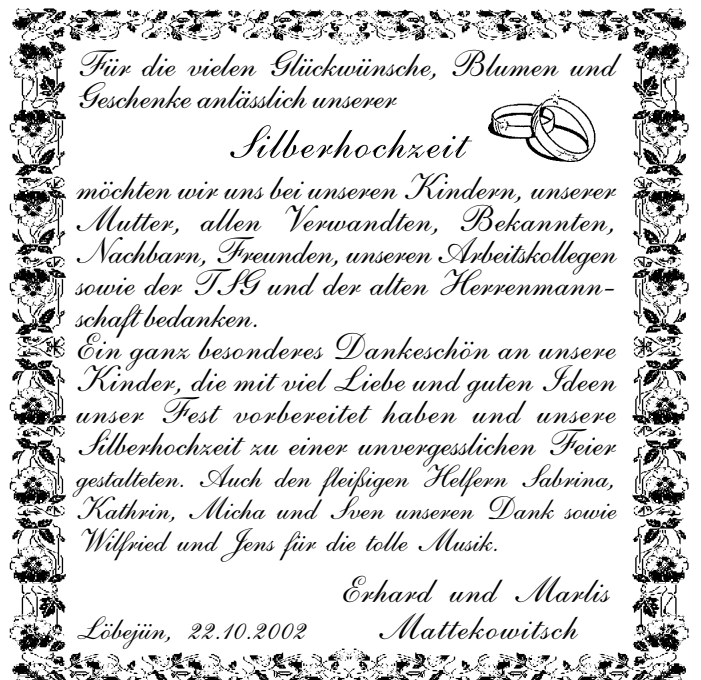 Für die vielen Glückwünsche, Blumen und
Geschenke anlässlich unserer
Silberhochzeit
möchten wir uns bei unseren Kindern, unserer
Mutter, allen Verwandten, Bekannten,
Nachbarn, Freunden, unseren Arbeitskollegen
sowie der TSG und der alten Herrenmann-
schaft bedanken.
Ein ganz besonderes Dankeschön an unsere
Kinder, die mit viel Liebe und guten Ideen
unser Fest vorbereitet haben und unsere
Silberhochzeit zu einer unvergesslichen Feier
gestalteten. Auch den fleißigen Helfern Sabrina,
Kathrin, Micha und Sven unseren Dank sowie
Wilfried und Jens für die tolle Musik.
Erhard und Marlis
Löbejün, 22.10.2002 Mattekowitsch